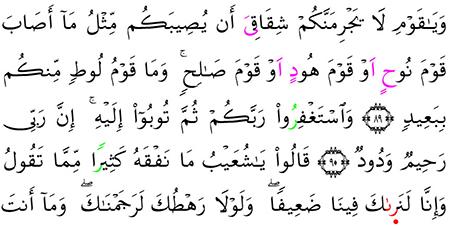 وَيَـٰقَوْمِ لَا يَجْرِمَنَّكُمْ شِقَاقِىَ أَن يُصِيبَكُم مِّثْلُ مَآ أَصَابَ
قَوْمَ نُوحٍ اَوْ قَوْمَ هُودٍ اَوْ قَوْمَ صَـٰلِحٍ ۚ وَمَا قَوْمُ لُوطٍ مِّنكُم
بِبَعِيدٍ ﴿٨٩﴾ وَٱسْتَغْفِرُوا۟ رَبَّكُمْ ثُمَّ تُوبُوٓا۟ إِلَيْهِ ۚ إِنَّ رَبِّى
رَحِيمٌ وَدُودٌ ﴿٩٠﴾ قَالُوا۟ يَـٰشُعَيْبُ مَا نَفْقَهُ كَثِيرًا مِّمَّا تَقُولُ
وَإِنَّا لَنَرىٰكَ فِينَا ضَعِيفًا ۖ وَلَوْلَا رَهْطُكَ لَرَجَمْنَـٰكَ ۖ وَمَآ أَنتَ